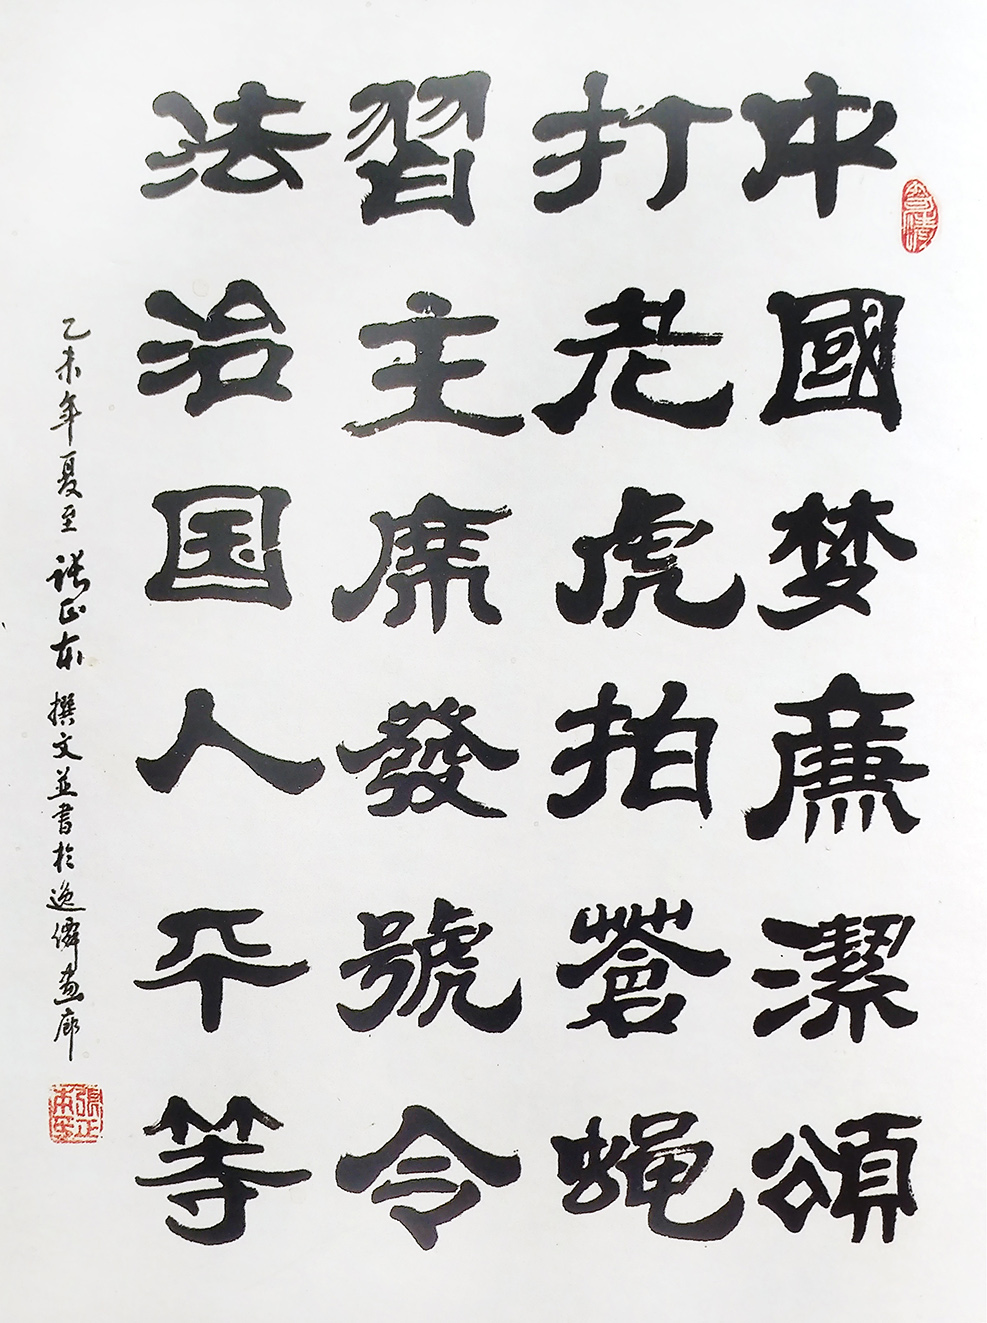 中國梦廉潔頌
打老虎拍蒼蝇
習主席發號令
法治国人平等
乙未年夏至張正本撰文並書於逸儒画廊